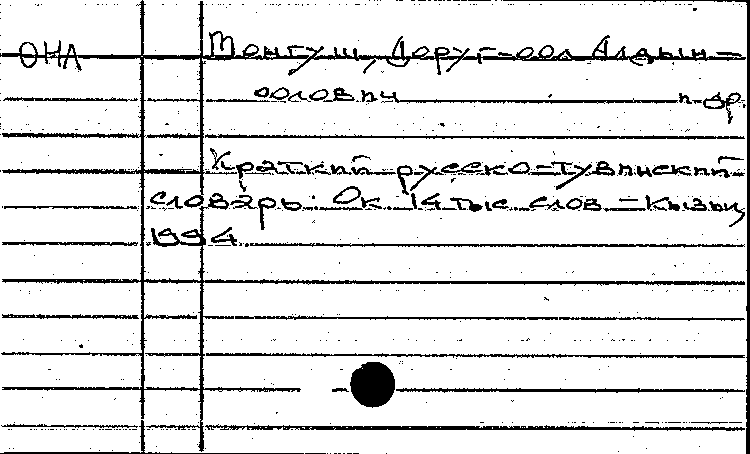 ОНЛ
Монгуш, Доруг-оол Алдын-
оолович и др.
Краткий русско-тувинский
словарь: Ок 14 тыс слов - Кызыл,
1994